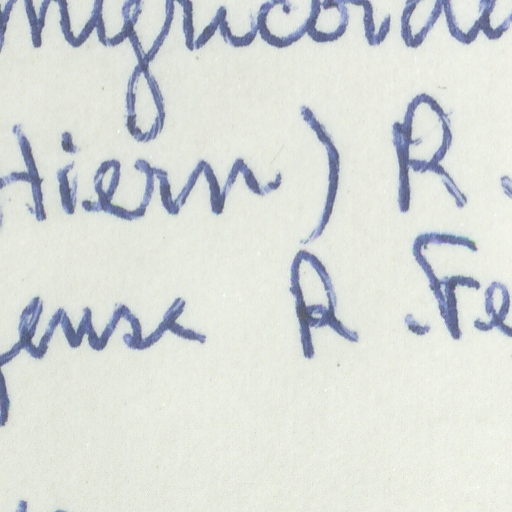 nigricoide
Hiern) R.
gense R. Fe